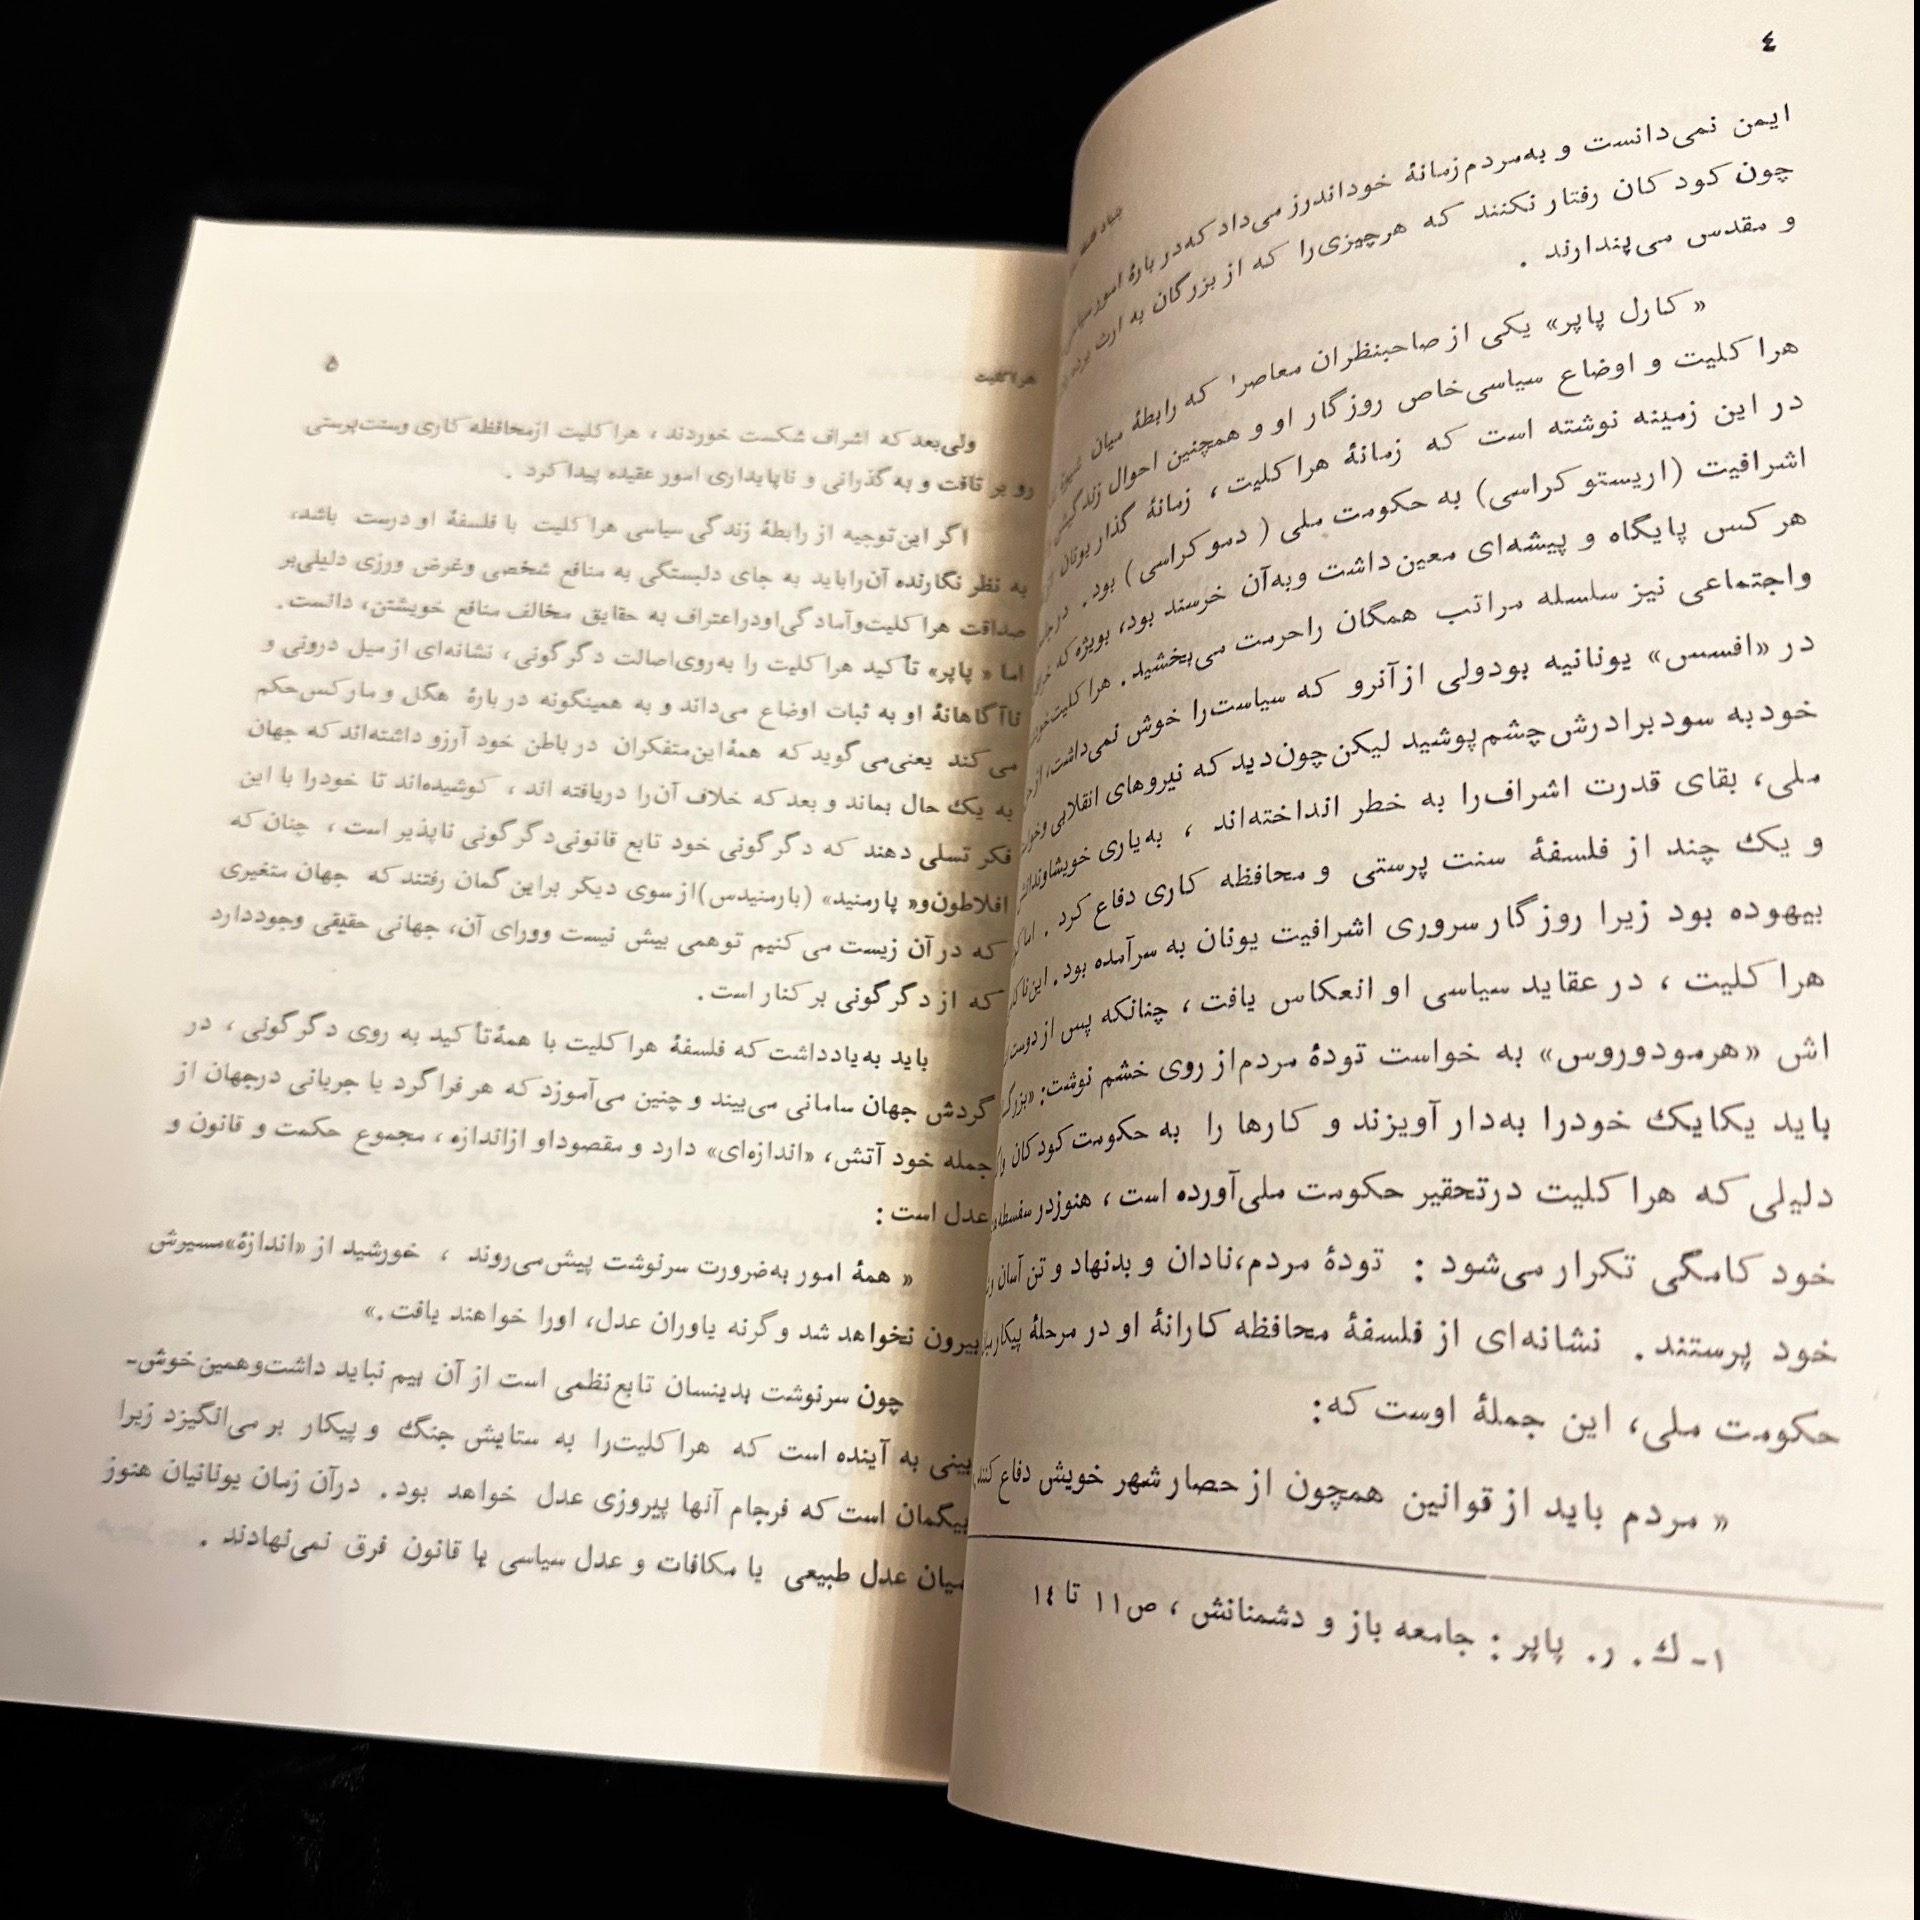 ٤
ایمن نمی‌دانست و به‌مردم زمانهٔ خود اندرز می‌داد که در بارهٔ امور سیاسی
چون کودکان رفتار نکنند که هرچیزی را که از بزرگان به ارث برند
و مقدس می‌پندارند .
« کارل پاپر» یکی از صاحبنظران معاصر۱ که رابطهٔ میان
هراکلیت و اوضاع سیاسی خاص روزگار او و همچنین احوال زندگیش
در این زمینه نوشته است که زمانهٔ هراکلیت ، زمانهٔ گذار یونان
اشرافیت (اریستوکراسی) به حکومت ملی ( دموکراسی ) بود.
هرکس پایگاه و پیشه‌ای معین داشت وبه‌آن خرسند بود، بویژه که
واجتماعی نیز سلسله مراتب همگان راحرمت می‌بخشید. هراکلیت
در «افسس» یونانیه بودولی ازآنرو که سیاست‌را خوش نمی‌داشت،
خودبه سودبرادرش چشم پوشید لیکن چون‌دید که نیروهای انقلابی
ملی، بقای قدرت اشراف‌را به خطر انداخته‌اند ، به‌یاری خویشاوندانش
و یک چند از فلسفهٔ سنت پرستی و محافظه کاری دفاع کرد . اما
بیهوده بود زیرا روزگار سروری اشرافیت یونان به سرآمده بود. این
هراکلیت ، در عقاید سیاسی او انعکاس یافت ، چنانکه پس از
اش «هرمودوروس» به خواست تودهٔ مردم‌از روی خشم نوشت:
باید یکایک خودرا به‌دار آویزند و کارها را به حکومت کودکان
دلیلی که هراکلیت درتحقیر حکومت ملی‌آورده است ، هنوزدر
خود کامگی تکرار می‌شود : تودهٔ مردم،نادان و بدنهاد و تن آسان
خود پرستند . نشانه‌ای از فلسفهٔ محافظه کارانهٔ او در مرحلهٔ
حکومت ملی، این جملهٔ اوست که:
« مردم باید از قوانین همچون از حصار شهر خویش دفاع
۱- ك. ر. پاپر: جامعه باز و دشمنانش ، ص۱۱ تا ۱٤
هراکلیت
۵
ولی‌بعد که اشراف شکست خوردند ، هراکلیت ازمحافظه کاری وسنت‌پرستی
رو بر تافت و به گذرانی و ناپایداری امور عقیده پیدا کرد .
اگر این توجیه از رابطهٔ زندگی سیاسی هراکلیت با فلسفهٔ او درست باشد،
به نظر نگارنده آن‌راباید به جای دلبستگی به منافع شخصی وغرض ورزی دلیلی‌بر
صداقت هراکلیت‌وآمادگی‌اودراعتراف به حقایق مخالف منافع خویشتن، دانست.
اما « پاپر» تأکید هراکلیت را به‌روی‌اصالت دگرگونی ، نشانه‌ای ازمیل درونی و
ناآگاهانهٔ او به ثبات اوضاع می‌داند و به همینگونه در بارهٔ هگل و مارکس‌حکم
می‌کند یعنی‌می‌گوید که همهٔ‌این‌متفکران در باطن خود آرزو داشته‌اند که جهان
به یک حال بماند و بعدکه خلاف آن‌را دریافته اند ، کوشیده‌اند تا خودرا با این
فکر تسلی دهند که دگرگونی خود تابع قانونی‌دگرگونی ناپذیر است ، چنان که
افلاطون‌و« پارمنید» (بارمنیدس)ازسوی دیگر براین گمان رفتند که جهان متغیری
که درآن زیست می‌کنیم توهمی بیش نیست وورای آن، جهانی حقیقی وجوددارد
که از دگرگونی برکنار است .
باید به‌یادداشت که فلسفهٔ هراکلیت با همهٔ‌تأکید به روی دگرگونی ، در
گردش جهان سامانی می‌بیند و چنین می‌آموزد که هر فراگرد یا جریانی درجهان از
جمله خود آتش، «اندازه‌ای» دارد و مقصوداو ازاندازه ، مجموع حکمت و قانون و
عدل است :
« همهٔ امور به‌ضرورت سرنوشت پیش‌می‌روند ، خورشید از «اندازهٔ»مسیرش
بیرون نخواهد شد وگرنه یاوران عدل، اورا خواهند یافت.»
چون سرنوشت بدینسان تابع‌نظمی است از آن بیم نباید داشت‌وهمین‌خوش-
بینی به آینده است که هراکلیت‌را به ستایش جنگ و پیکار برمی‌انگیزد زیرا
بیگمان است که فرجام آنها پیروزی عدل خواهد بود. درآن زمان یونانیان هنوز
میان عدل طبیعی یا مکافات و عدل سیاسی یا قانون فرق نمی‌نهادند .